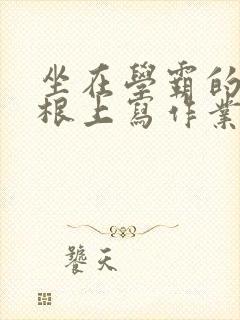 坐在學霸的
根上寫作業
饕天